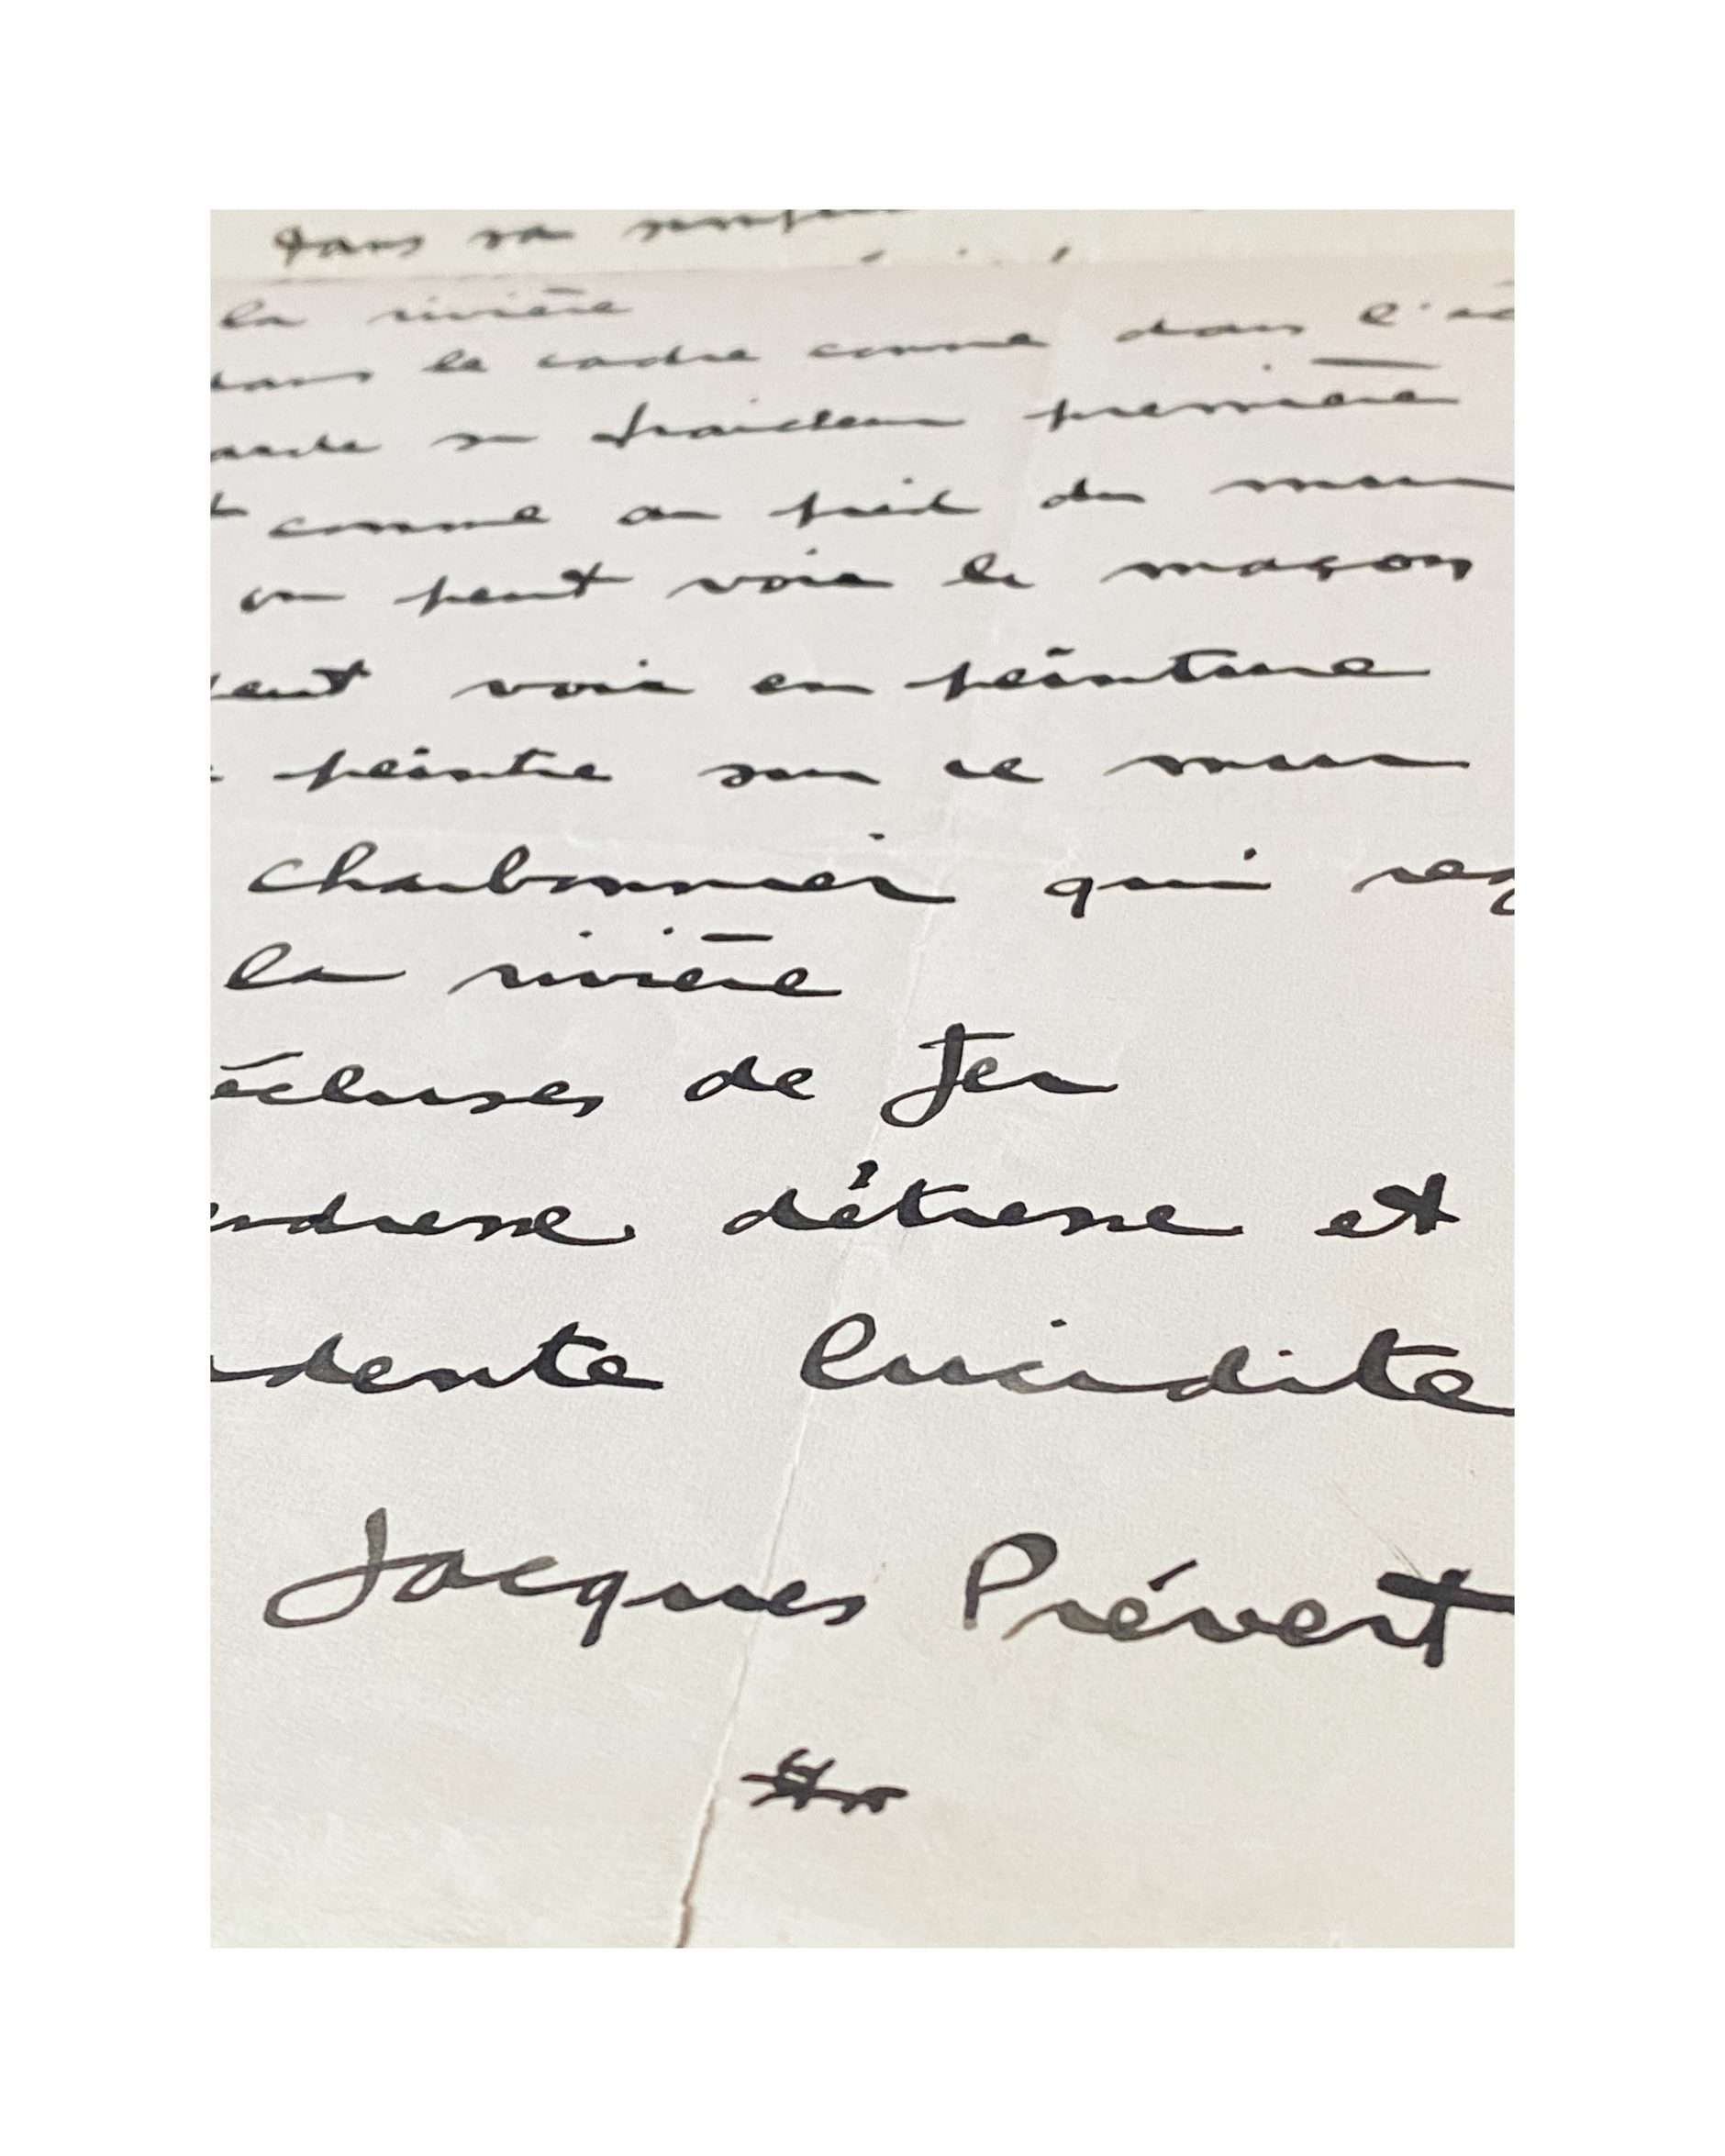 dans sa
la rivière
dans le cadre comme dans l'éc
arde sa fraicheur première
t comme au pied du mur
on peut voir le maçon
eut voir en peinture
peintre sur ce mur
charbonnier qui reg
la rivière
écluses de fer
endresse détresse et
dente lucidité
Jacques Prévert